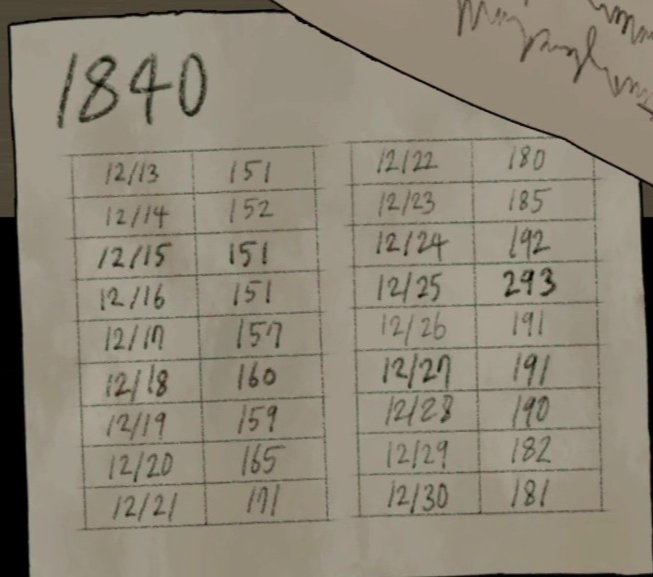 1840
12/13 151
12/14 152
12/15 151
12/16 151
12/17 157
12/18 160
12/19 159
12/20 165
12/21 171
12/22 180
12/23 185
12/24 192
12/25 293
12/26 191
12/27 191
12/28 190
12/29 182
12/30 181